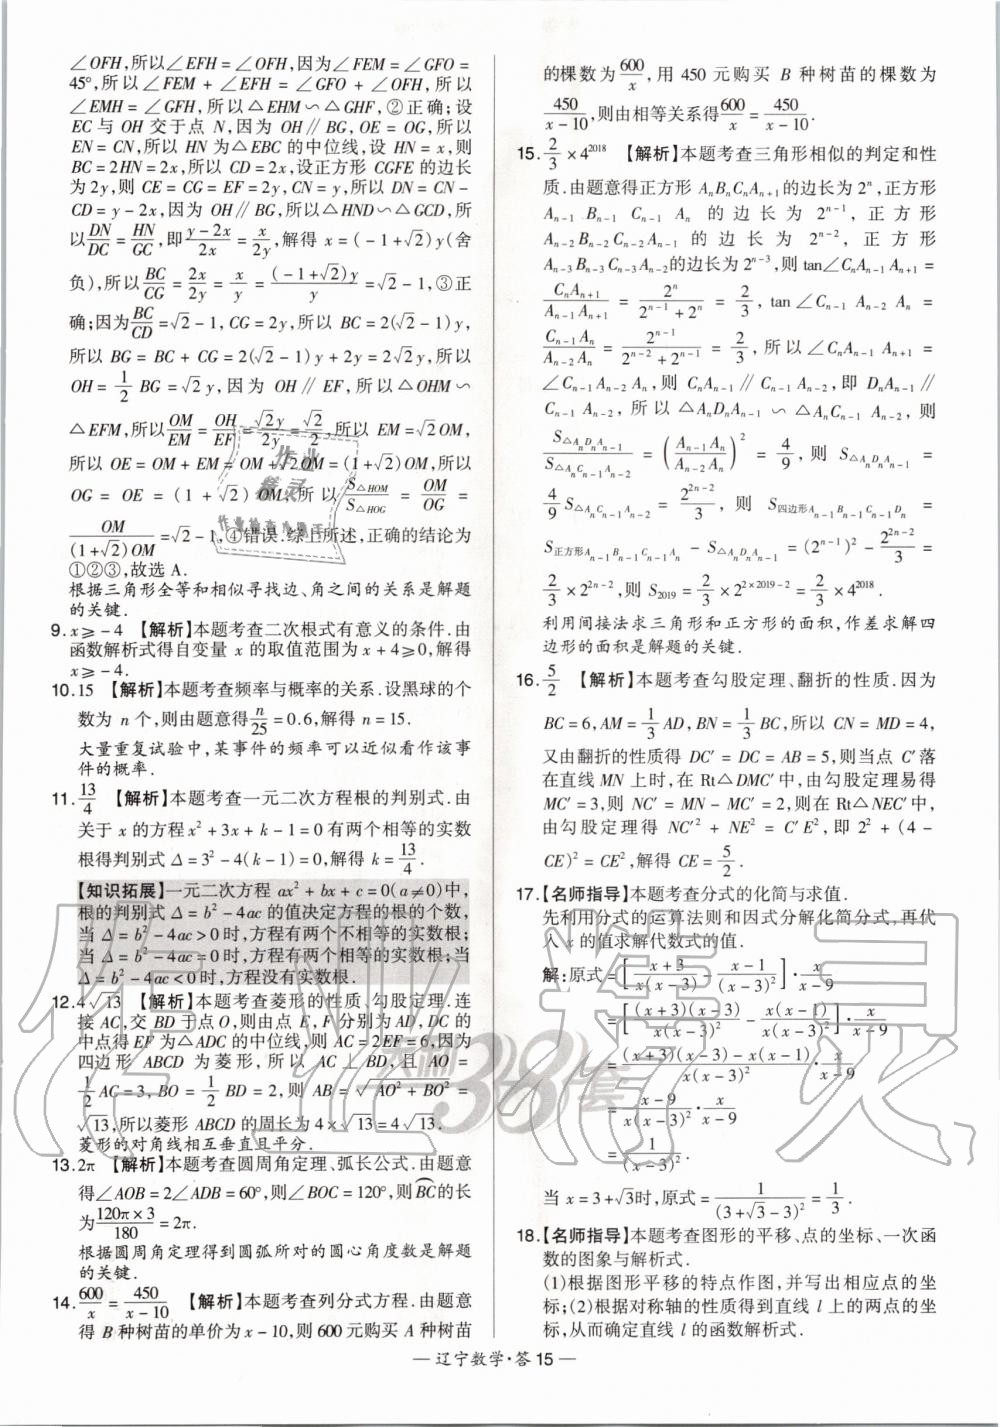 ∠OFH,所以∠EFH=∠OFH,因为∠FEM=∠GFO=
45°,所以∠FEM+∠EFH=∠GFO+∠OFH,所以
∠EMH=∠GFH,所以△EHM∽△GHF,②正确;设
EC与OH交于点N,因为OH∥BG,OE=OG,所以
EN=CN,所以HN为△EBC的中位线,设HN=x,则
BC=2HN=2x,所以CD=2x,设正方形CGFE的边长
为2y,则CE=CG=EF=2y,CN=y,所以DN=CN-
CD=y-2x,因为OH∥BG,所以△HND∽△GCD,所
以DN/DC=HN/GC,即(y-2x)/2x=x/2y,解得x=(-1+√2)y(舍
负),所以BC/CG=2x/2y=x/y=(-1+√2)y/y=√2-1,③正
确;因为BC/CD=√2-1,CG=2y,所以BC=2(√2-1)y,
所以BG=BC+CG=2(√2-1)y+2y=2√2y,所以
OH=1/2BG=√2y,因为OH∥EF,所以△OHM∽
△EFM,所以OM/EM=OH/EF=√2y/2y=√2/2,所以EM=√2OM,
所以OE=OM+EM=OM+√2OM=(1+√2)OM,所以
OG=OE=(1+√2)OM,所以S△HOM/S△HOG=OM/OG=
OM/(1+√2)OM=√2-1,④错误.综上所述,正确的结论为
①②③,故选A.
根据三角形全等和相似寻找边、角之间的关系是解题
的关键.
9.x≥-4 【解析】本题考查二次根式有意义的条件.由
函数解析式得自变量x的取值范围为x+4≥0,解得
x≥-4.
10.15 【解析】本题考查频率与概率的关系.设黑球的个
数为n个,则由题意得n/25=0.6,解得n=15.
大量重复试验中,某事件的频率可以近似看作该事
件的概率.
11.13/4 【解析】本题考查一元二次方程根的判别式.由
关于x的方程x²+3x+k-1=0有两个相等的实数
根得判别式Δ=3²-4(k-1)=0,解得k=13/4.
【知识拓展】一元二次方程ax²+bx+c=0(a≠0)中,
根的判别式Δ=b²-4ac的值决定方程的根的个数,
当Δ=b²-4ac>0时,方程有两个不相等的实数根;
当Δ=b²-4ac=0时,方程有两个相等的实数根;当
Δ=b²-4ac<0时,方程没有实数根.
12.4√13 【解析】本题考查菱形的性质、勾股定理.连
接AC,交BD于点O,则由点E,F分别为AD,DC的
中点得EF为△ADC的中位线,则AC=2EF=6,因为
四边形ABCD为菱形,所以AC⊥BD,且AO=
1/2AC=3,BO=1/2BD=2,则AB=√(AO²+BO²)=
√13,所以菱形ABCD的周长为4×√13=4√13.
菱形的对角线相互垂直且平分.
13.2π 【解析】本题考查圆周角定理、弧长公式.由题意
得∠AOB=2∠ADB=60°,则∠BOC=120°,则B͡C的长
为120π×3/180=2π.
根据圆周角定理得到圆弧所对的圆心角度数是解题
的关键.
14.600/x=450/(x-10) 【解析】本题考查列分式方程.由题意
得B种树苗的单价为x-10,则600元购买A种树苗
的棵数为600/x,用450元购买B种树苗的棵数为
450/(x-10),则由相等关系得600/x=450/(x-10).
15.2/3×4²⁰¹⁸ 【解析】本题考查三角形相似的判定和性
质.由题意得正方形AₙBₙCₙAₙ₊₁的边长为2ⁿ,正方形
Aₙ₋₁Bₙ₋₁Cₙ₋₁Aₙ的边长为2ⁿ⁻¹,正方形
Aₙ₋₂Bₙ₋₂Cₙ₋₂Aₙ₋₁的边长为2ⁿ⁻²,正方形
Aₙ₋₃Bₙ₋₃Cₙ₋₃Aₙ₋₂的边长为2ⁿ⁻³,则tan∠CₙAₙ₋₁Aₙ₊₁=
CₙAₙ₊₁/Aₙ₋₁Aₙ₊₁=2ⁿ/(2ⁿ⁻¹+2ⁿ)=2/3,tan∠Cₙ₋₁Aₙ₋₂Aₙ=
Cₙ₋₁Aₙ/Aₙ₋₂Aₙ=2ⁿ⁻¹/(2ⁿ⁻²+2ⁿ⁻¹)=2/3,所以∠CₙAₙ₋₁Aₙ₊₁=
∠Cₙ₋₁Aₙ₋₂Aₙ,则CₙAₙ₋₁∥Cₙ₋₁Aₙ₋₂,即DₙAₙ₋₁∥
Cₙ₋₁Aₙ₋₂,所以△AₙDₙAₙ₋₁∽△AₙCₙ₋₁Aₙ₋₂,则
S△AₙDₙAₙ₋₁/S△AₙCₙ₋₁Aₙ₋₂=(Aₙ₋₁Aₙ/Aₙ₋₂Aₙ)²=4/9,则S△AₙDₙAₙ₋₁=
4/9S△AₙCₙ₋₁Aₙ₋₂=2²ⁿ⁻²/3,则S四边形Aₙ₋₁Bₙ₋₁Cₙ₋₁Dₙ=
S正方形Aₙ₋₁Bₙ₋₁Cₙ₋₁Aₙ-S△AₙDₙAₙ₋₁=(2ⁿ⁻¹)²-2²ⁿ⁻²/3=
2/3×2²ⁿ⁻²,则S₂₀₁₉=2/3×2²ˣ²⁰¹⁹⁻²=2/3×4²⁰¹⁸.
利用间接法求三角形和正方形的面积,作差求解四
边形的面积是解题的关键.
16.5/2 【解析】本题考查勾股定理、翻折的性质.因为
BC=6,AM=1/3AD,BN=1/3BC,所以CN=MD=4,
又由翻折的性质得DC′=DC=AB=5,则当点C′落
在直线MN上时,在Rt△DMC′中,由勾股定理易得
MC′=3,则NC′=MN-MC′=2,则在Rt△NEC′中,
由勾股定理得NC′²+NE²=C′E²,即2²+(4-
CE)²=CE²,解得CE=5/2.
17.【名师指导】本题考查分式的化简与求值.
先利用分式的运算法则和因式分解化简分式,再代
入x的值求解代数式的值.
解:原式=[(x+3)/x(x-3)-(x-1)/(x-3)²]·x/(x-9)
=[(x+3)(x-3)/x(x-3)²-x(x-1)/x(x-3)²]·x/(x-9)
=[(x+3)(x-3)-x(x-1)]/x(x-3)²·x/(x-9)
=(x-9)/x(x-3)²·x/(x-9)
=1/(x-3)².
当x=3+√3时,原式=1/(3+√3-3)²=1/3.
18.【名师指导】本题考查图形的平移、点的坐标、一次函
数的图象与解析式.
(1)根据图形平移的特点作图,并写出相应点的坐
标;(2)根据对称轴的性质得到直线l上的两点的坐
标,从而确定直线l的函数解析式.
—辽宁数学·答15—